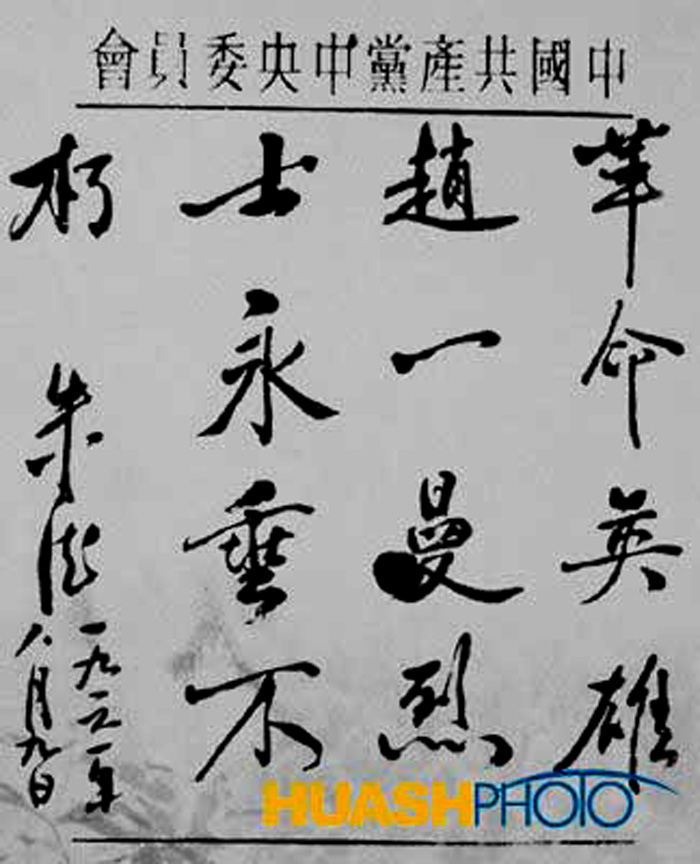 中國共產黨中央委員會
革命英雄
趙一曼烈
士永垂不
朽
朱德
一九六一年
八月九日
HUASHPHOTO